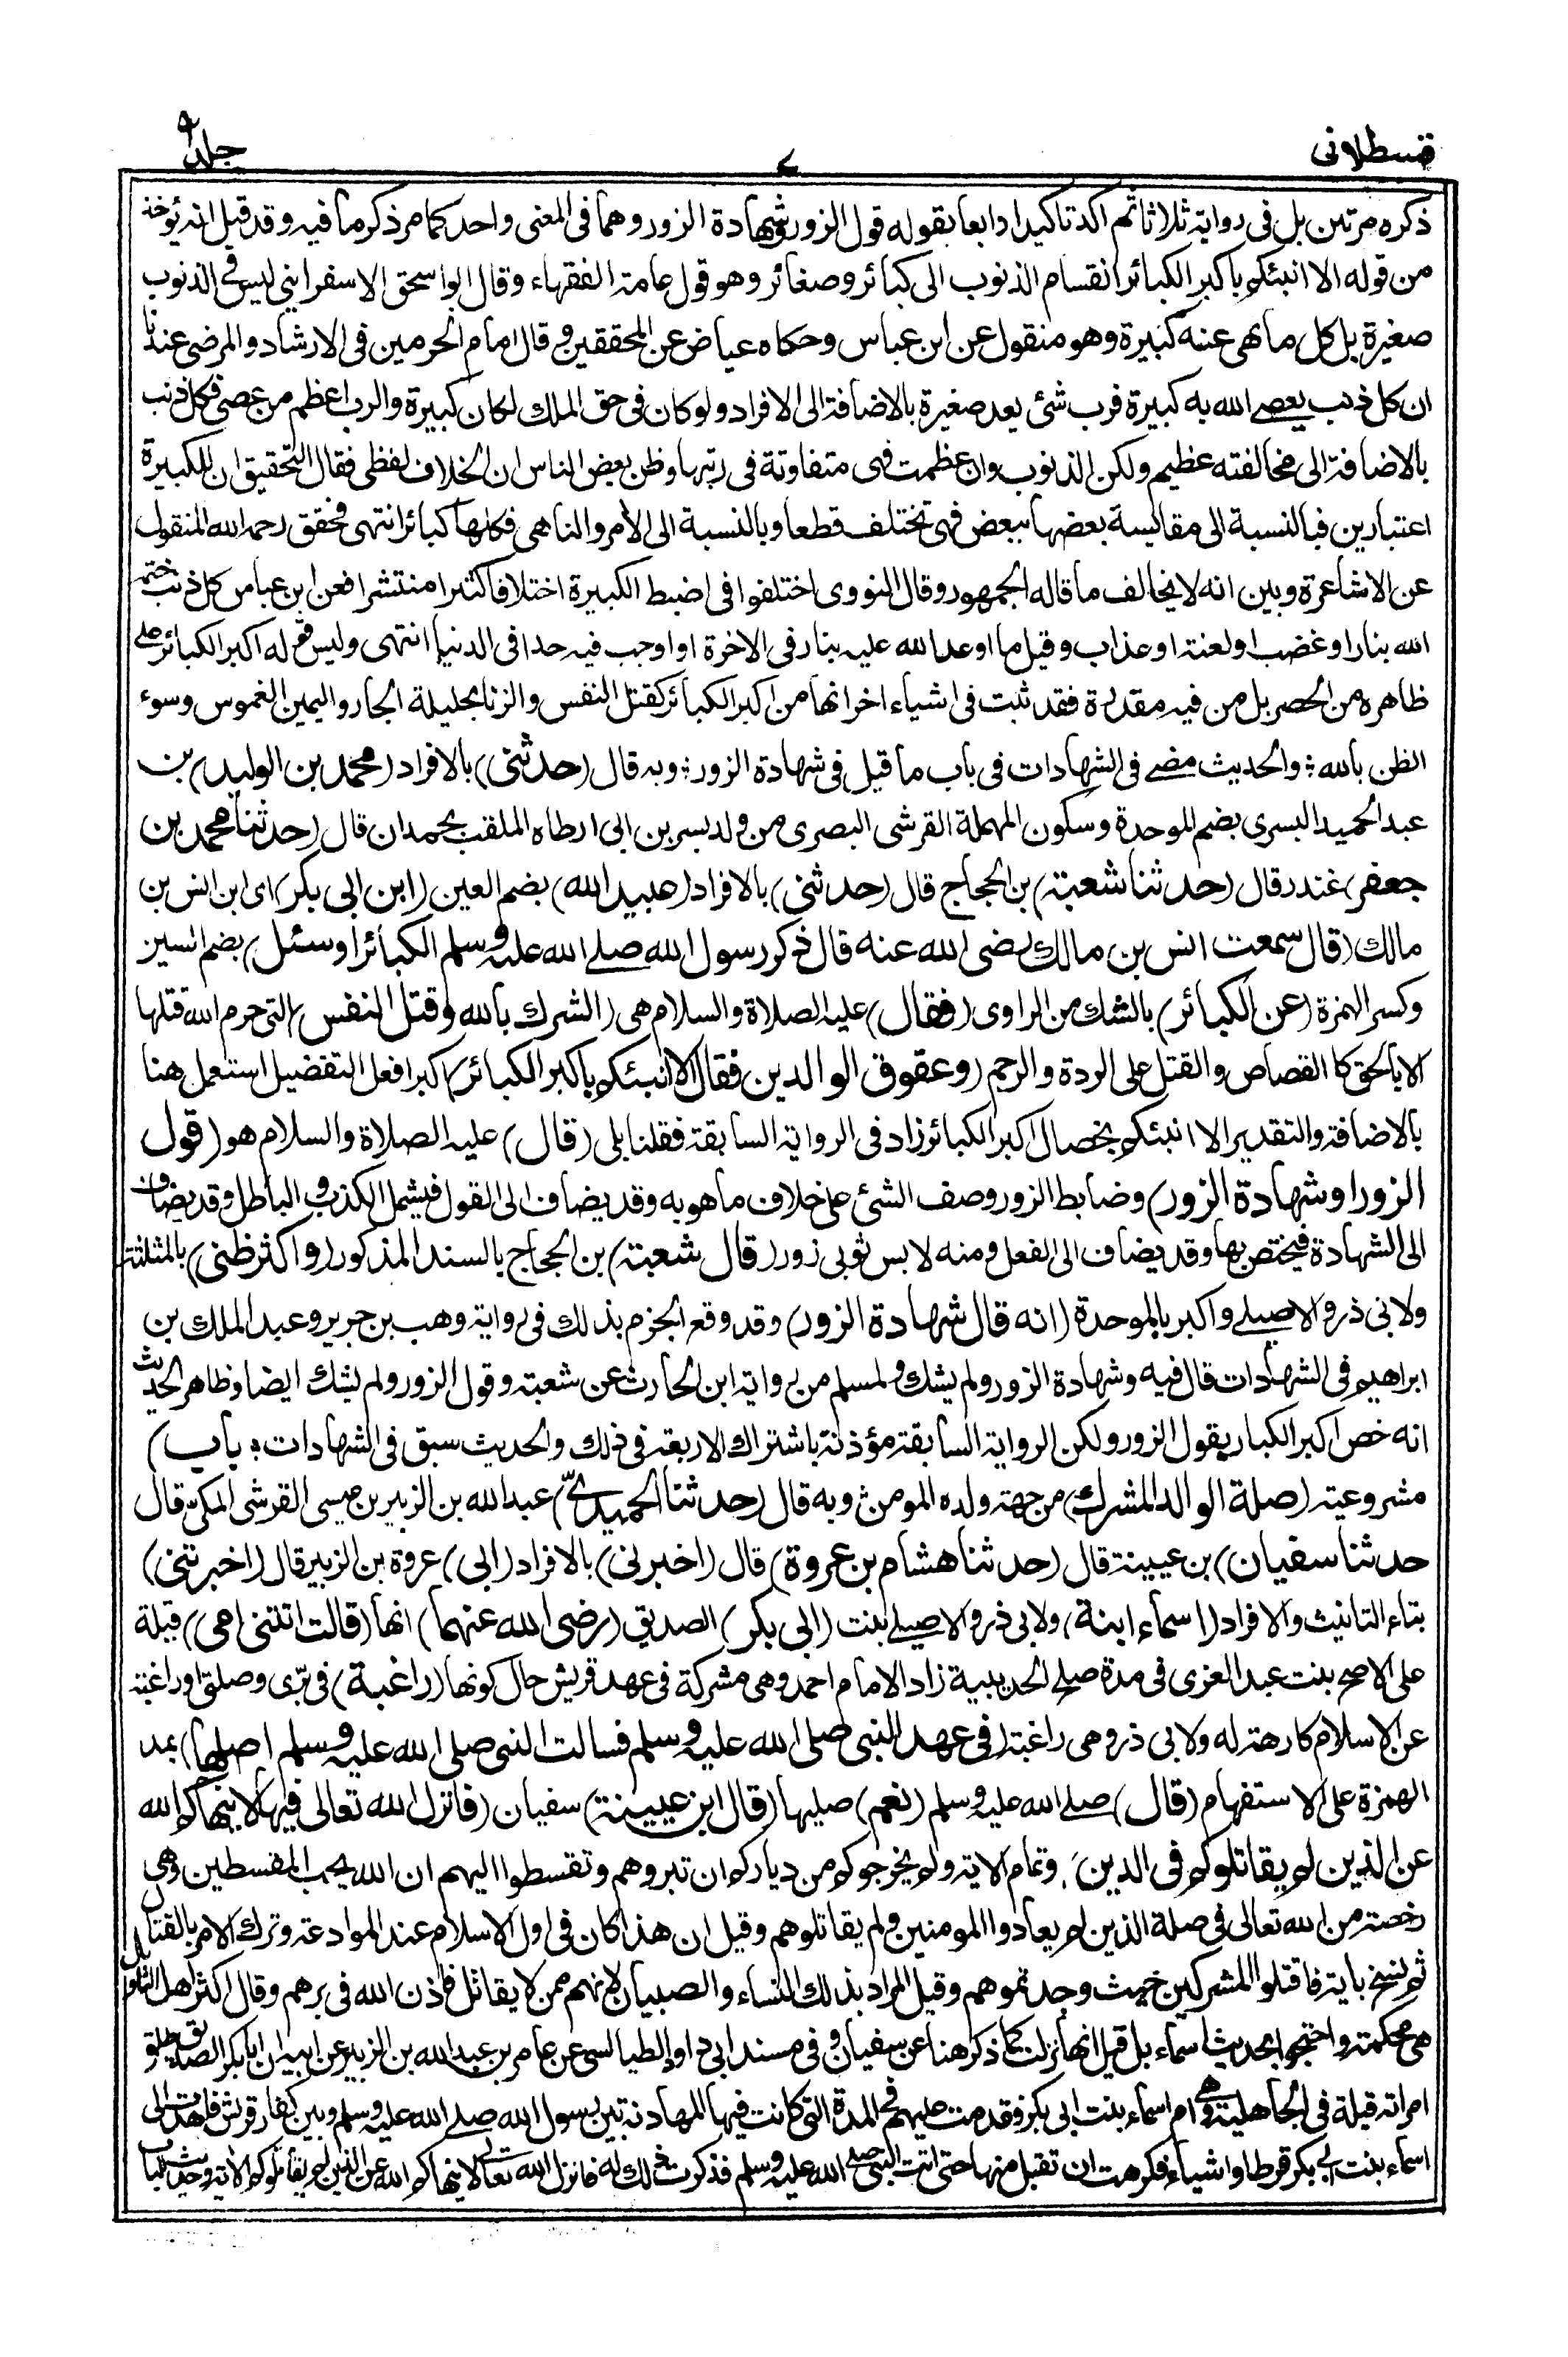 قسطلانی
٧
جلد ٩
ذكره مرتين بل فى رواية ثلاثا ثم اكد تاكيدا رابعا بقوله قول الزور وشهادة الزور وهما فى المعنى واحد كما مر ذكر ما فيه وقد قيل انه يؤخذ
من قوله الا انبئكم باكبر الكبائر انقسام الذنوب الى كبائر وصغائر وهو قول عامة الفقهاء وقال ابو اسحق الاسفرايني ليس في الذنوب
صغيرة بل كل ما نهى عنه كبيرة وهو منقول عن ابن عباس وحكاه عياض عن المحققين و قال امام الحرمين فى الارشاد والمرضى عندنا
ان كل ذنب يعصى الله به كبيرة فرب شئ يعد صغيرة بالاضافة الى الافراد ولو كان فى حق الملك لكان كبيرة والرب اعظم من عصى فكل ذنب
بالاضافة الى مخالفته عظيم ولكن الذنوب وان عظمت فهى متفاوتة فى رتبها وظن بعض الناس ان الخلاف لفظى فقال التحقيق ان للكبيرة
اعتبارين فبالنسبة الى مقايسة بعضها ببعض فهى تختلف قطعا وبالنسبة الى الأمر والناهى فكلها كبائر انتهى فحقق رحمه الله المنقول
عن الاشاعرة وبين انه لا يخالف ما قاله الجمهور وقال النووى اختلفوا فى ضبط الكبيرة اختلافا كثيرا منتشرا فعن ابن عباس كل ذنب ختمه
الله بنار او غضب او لعنة او عذاب وقيل ما اوعد الله عليه بنار فى الاخرة او اوجب فيه حدا فى الدنيا انتهى وليس قوله اكبر الكبائر على
ظاهره من الحصر بل من فيه مقدرة فقد ثبت فى اشياء اخر انها من اكبر الكبائر كقتل النفس والزنا بحليلة الجار واليمين الغموس وسوء
الظن بالله ؛ والحديث مضے فى الشهادات فى باب ما قيل فى شهادة الزور ؛ وبه قال (حدثنى) بالافراد (محمد بن الوليد) بن
عبد الحميد البسرى بضم الموحدة وسكون المهملة القرشى البصرى من ولد بسر بن ابى ارطاه الملقب بحمدان قال (حدثنا محمد بن
جعفر) غندر قال (حدثنا شعبة) بن الحجاج قال (حدثنى) بالافراد (عبيد الله) بضم العين (ابن ابى بكر) اى ابن انس بن
مالك (قال سمعت انس بن مالك رضى الله عنه قال ذكر رسول الله صلے الله عليه وسلم الكبائر او سئل) بضم السين
وكسر الهمزة (عن الكبائر) بالشك من الراوى (فقال) عليه الصلاة والسلام هى (الشرك بالله وقتل النفس) التى حرم الله قتلها
الا بالحق كا القصاص والقتل على الردة والرجم (وعقوق الوالدين فقال الا انبئكم باكبر الكبائر) اكبر افعل التفضيل استعمل هنا
بالاضافة والتقدير الا انبئكم بخصال اكبر الكبائر زاد فى الرواية السابقة فقلنا بلى (قال) عليه الصلاة والسلام هو (قول
الزور او شهادة الزور) وضابط الزور وصف الشئ على خلاف ما هو به وقد يضاف الى القول فيشمل الكذب و الباطل وقد يضاف
الى الشهادة فيختص بها وقد يضاف الى الفعل ومنه لابس ثوبى زور (قال شعبة) بن الحجاج بالسند المذكور (واكثر ظنى) بالمثلثة
ولابى ذر والاصيلے واكبر بالموحدة (انه قال شهادة الزور) وقد وقع الجزم بذلك فى رواية وهب بن جرير وعبد الملك بن
ابراهيم فى الشهادات قال فيه وشهادة الزور ولم يشك ولمسلم من رواية ابن الحارث عن شعبة وقول الزور ولم يشك ايضا وظاهر الحديث
انه خص اكبر الكبار بقول الزور ولكن الرواية السابقة مؤذنة باشتراك الاربعة فى ذلك والحديث سبق فى الشهادات ؛ باب)
مشروعية (صلة الوالد المشرك) من جهة ولده المومن ؛ وبه قال (حدثنا الحميدىّ) عبد الله بن الزبير بن عيسى القرشى المكى قال
حدثنا سفيان) بن عيينة قال (حدثنا هشام بن عروة) قال (اخبرنى) بالافراد (ابى) عروة بن الزبير قال (اخبرتنى)
بتاء التانيث والافراد (اسماء ابنة) ولابى ذر والاصيلے بنت (ابى بكر) الصديق (رضى الله عنهما) انها (قالت اتتنى امى) قيلة
على الاصح بنت عبد العزى فى مدة صلح الحديبية زاد الامام احمد وهى مشركة فى عهد قريش حال كونها (راغبة) فى برّى وصلتى او راغبة
عن الاسلام كارهة له ولابى ذر وهى راغبة (فى عهد النبى صلى الله عليه وسلم فسالت النبى صلى الله عليه وسلم اصلها) بمد
الهمزة على الاستفهام (قال) صلے الله عليه وسلم (نعم) صليها (قال ابن عيينة) سفيان (فانزل الله تعالى فيها لا ينهاكم الله
عن الذين لم يقاتلوكم فى الدين) وتمام الاية ولم يخرجوكم من دياركم ان تبروهم وتقسطوا اليهم ان الله يحب المقسطين وهى
رخصة من الله تعالى فى صلة الذين لم يعادوا المومنين ولم يقاتلوهم وقيل ان هذا كان فى اول الاسلام عند الموادعة وترك الامر بالقتال
ثم نسخ باية فاقتلوا المشركين حيث وجدتموهم وقيل المراد بذلك النساء والصبيان لانهم ممن لا يقاتل فاذن الله فى برهم وقال اكثر اهل التاويل
هى محكمة واحتجوا بحديث اسماء بل قيل انها نزلت كما ذكر هنا عن سفيان و فى مسند ابى داود الطيالسى عن عامر بن عبد الله بن الزبير عن ابيه ان ابا بكر الصديق طلق
امراته قيلة فى الجاهلية وهى ام اسماء بنت ابى بكر فقدمت عليهم فى المدة التى كانت فيها المهادنة بين رسول الله صلے الله عليه وسلم وبين كفار قريش فاهدت الى
اسماء بنت ابى بكر قرطا واشياء فكرهت ان تقبل منها حتى اتت النبى صلى الله عليه وسلم فذكرت ذلك له فانزل الله تعالى لا ينهاكم الله عن الذين لم يقاتلوكم الاية وحديث الباب